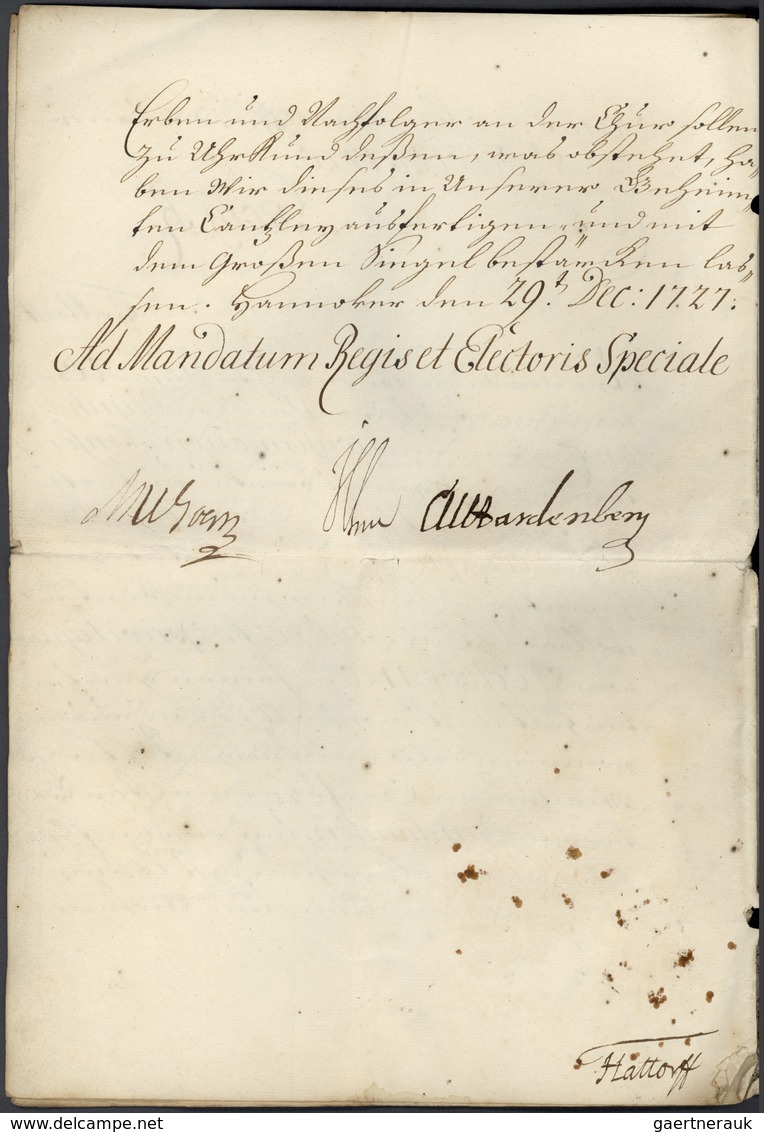 Erben und Nachfolger an der Chur sollen
zu Uhrkund deßen, was obstehet, ha„
ben Wir dieses in Unserer Geheim„
ten Cantzley ausfertigen, und mit
dem Großen Siegel bestärcken las„
sen. Hannover den 29.t Dec: 1727.
Ad Mandatum Regis et Electoris Speciale
Hardenberg
Hattorff
delcampe.net
gaertnerauk